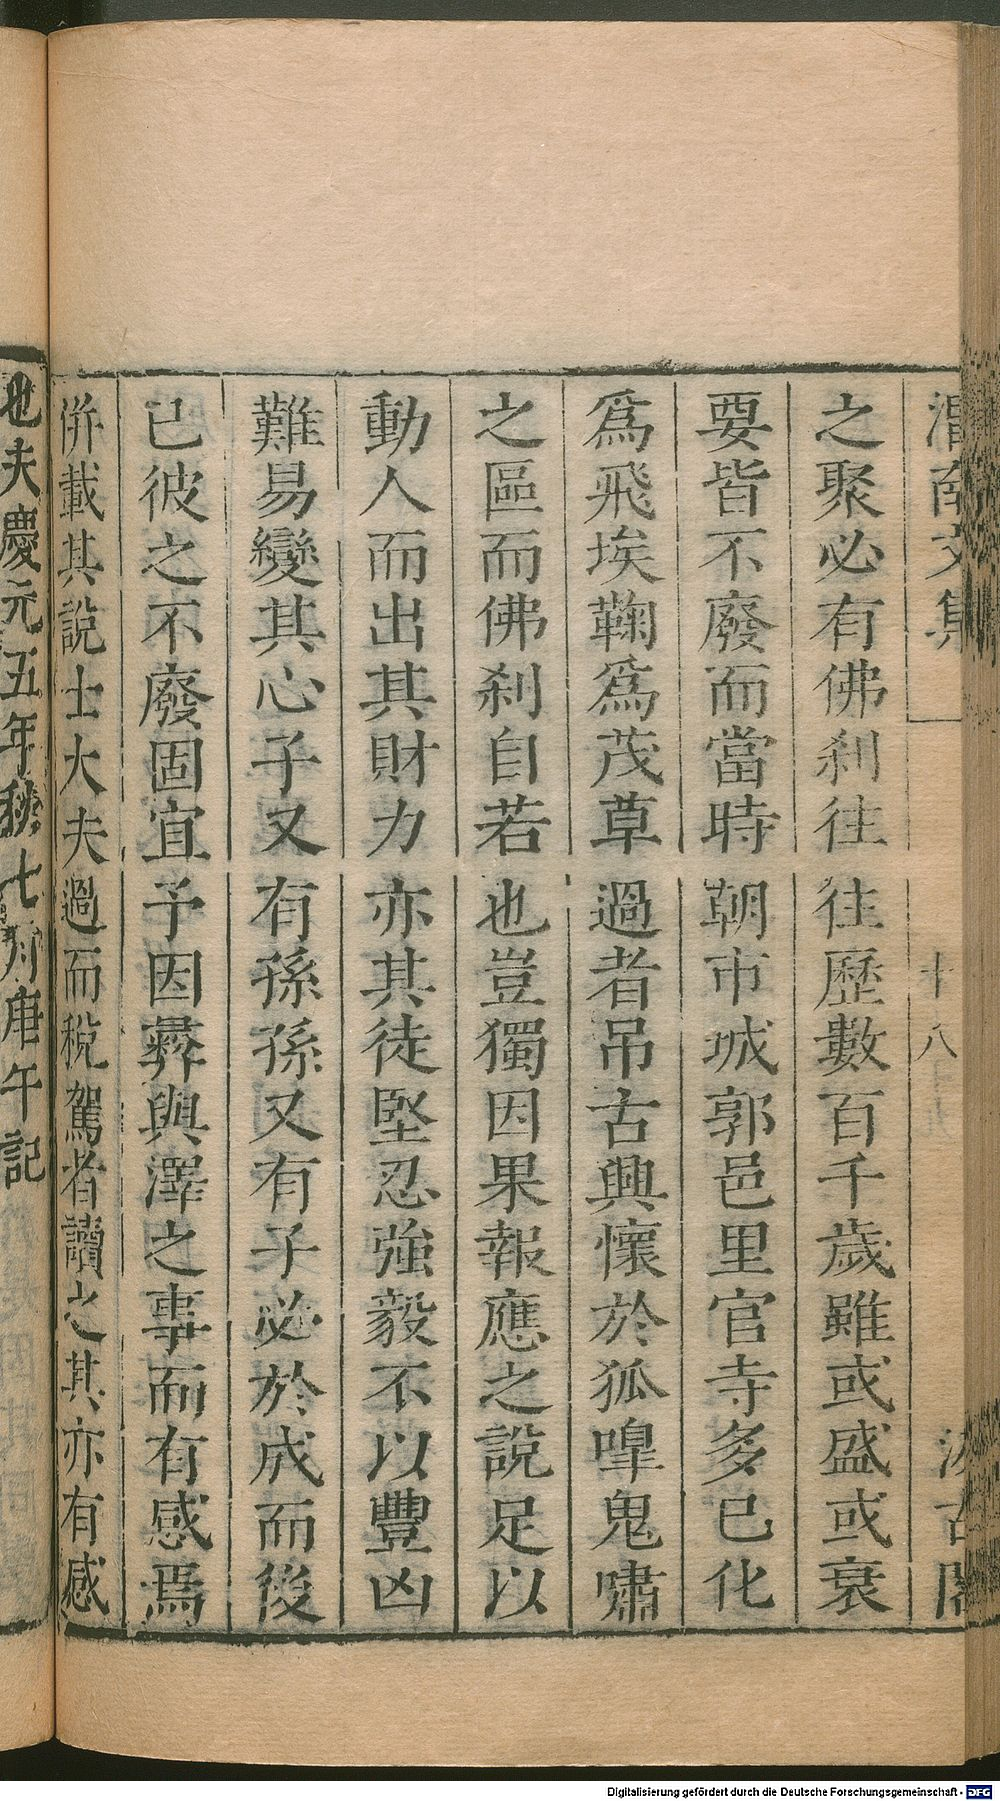 渭南文集 十八 汲古閣
之聚必有佛刹往往歷數百千歲雖或盛或衰
要皆不廢而當時朝市城郭邑里官寺多已化
爲飛埃鞠爲茂草過者吊古興懷於狐嘷鬼嘯
之區而佛刹自若也豈獨因果報應之說足以
動人而出其財力亦其徒堅忍強毅不以豐凶
難易變其心子又有孫孫又有子必於成而後
已彼之不廢固宜予因彛與澤之事而有感焉
併載其說士大夫過而稅駕者讀之其亦有感
也夫慶元五年秋七月庚午記
Digitalisierung gefördert durch die Deutsche Forschungsgemeinschaft - DFG